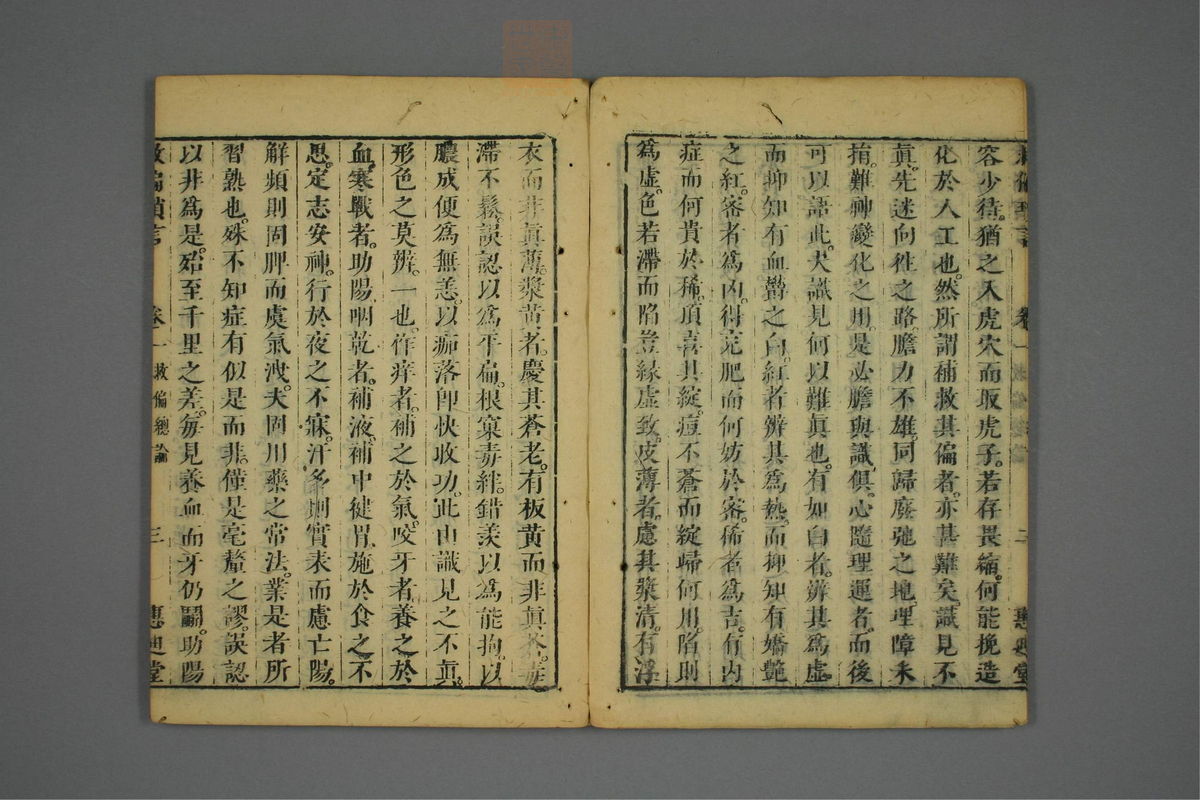 救偏瑣言 卷一 二 惠迪堂
容少待。猶之入虎穴而取虎子。若存畏縮。何能挽造
化於人工也。然所謂補救其偏者。亦甚難矣。識見不
眞。先迷向徃之路。膽力不雄。同歸廢弛之地。理障未
捐。難神變化之用。是必膽與識俱。心隨理運者。而後
可以語此。夫識見何以難眞也。有如白者。辨其爲虛。
而抑知有血欝之白。紅者辨其爲熱。而抑知有嬌艶
之紅。密者爲凶。得充肥而何妨於密。稀者爲吉。有内
症而何貴於稀。頂喜其綻。痘不蒼而綻歸何用。陷則
爲虛。色若滯而陷豈緣虛致。皮薄者。慮其漿清。有浮
衣而非眞薄。漿黄者。慶其蒼老。有板黄而非眞蒼。毒
滯不鬆。誤認以爲平扁。根窠毒絆。錯羨以爲能拘。以
膿成便爲無恙。以痂落卽快收功。此由識見之不眞。
形色之莫辨。一也。作痒者。補之於氣。咬牙者養之於
血。寒戰者。助陽。咽乾者。補液。補中健胃。施於食之不
思。定志安神。行於夜之不寐。汗多則實表而慮亡陽。
解頻則固脾而虞氣洩。夫固用藥之常法。業是者所
習熟也。殊不知症有似是而非。僅是毫釐之謬。誤認
以非爲是。殆至千里之差。每見養血而牙仍鬬。助陽
救偏瑣言 卷一 救偏總論 三 惠迪堂